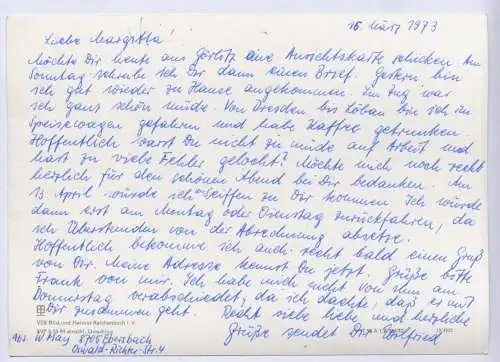 16. März 1973
Liebe Margitta!
Möchte Dir heute aus Görlitz eine Ansichtskarte schicken. Am
Sonntag schreibe ich Dir dann einen Brief. Gestern bin
ich gut wieder zu Hause angekommen. Im Zug war
ich ganz schön müde. Von Dresden bis Löbau bin ich im
Speisewagen gefahren und habe Kaffee getrunken.
Hoffentlich warst Du nicht zu müde auf Arbeit und
hast zu viele Fehler gelocht? Möchte mich noch recht
herzlich für den schönen Abend bei Dir bedanken. Am
13. April würde ich Seiffen zu Dir kommen. Ich würde
dann erst am Montag oder Dienstag zurückfahren, da
ich Überstunden von der Abrechnung absetze.
Hoffentlich bekomme ich auch recht bald einen Gruß
von Dir. Meine Adresse kennst Du jetzt. Grüße bitte
Frank von mir. Ich habe mich nicht von ihm am
Donnerstag verabschiedet, da ich dachte, daß er mit
Dir zusammen geht. Recht viele liebe und herzliche
VEB Bild und Heimat Reichenbach i. V.
Grüße sendet Dir Wilfried
Abs. W. Hay 8705 Ebersbach
Oswald-Richter-Str. 4